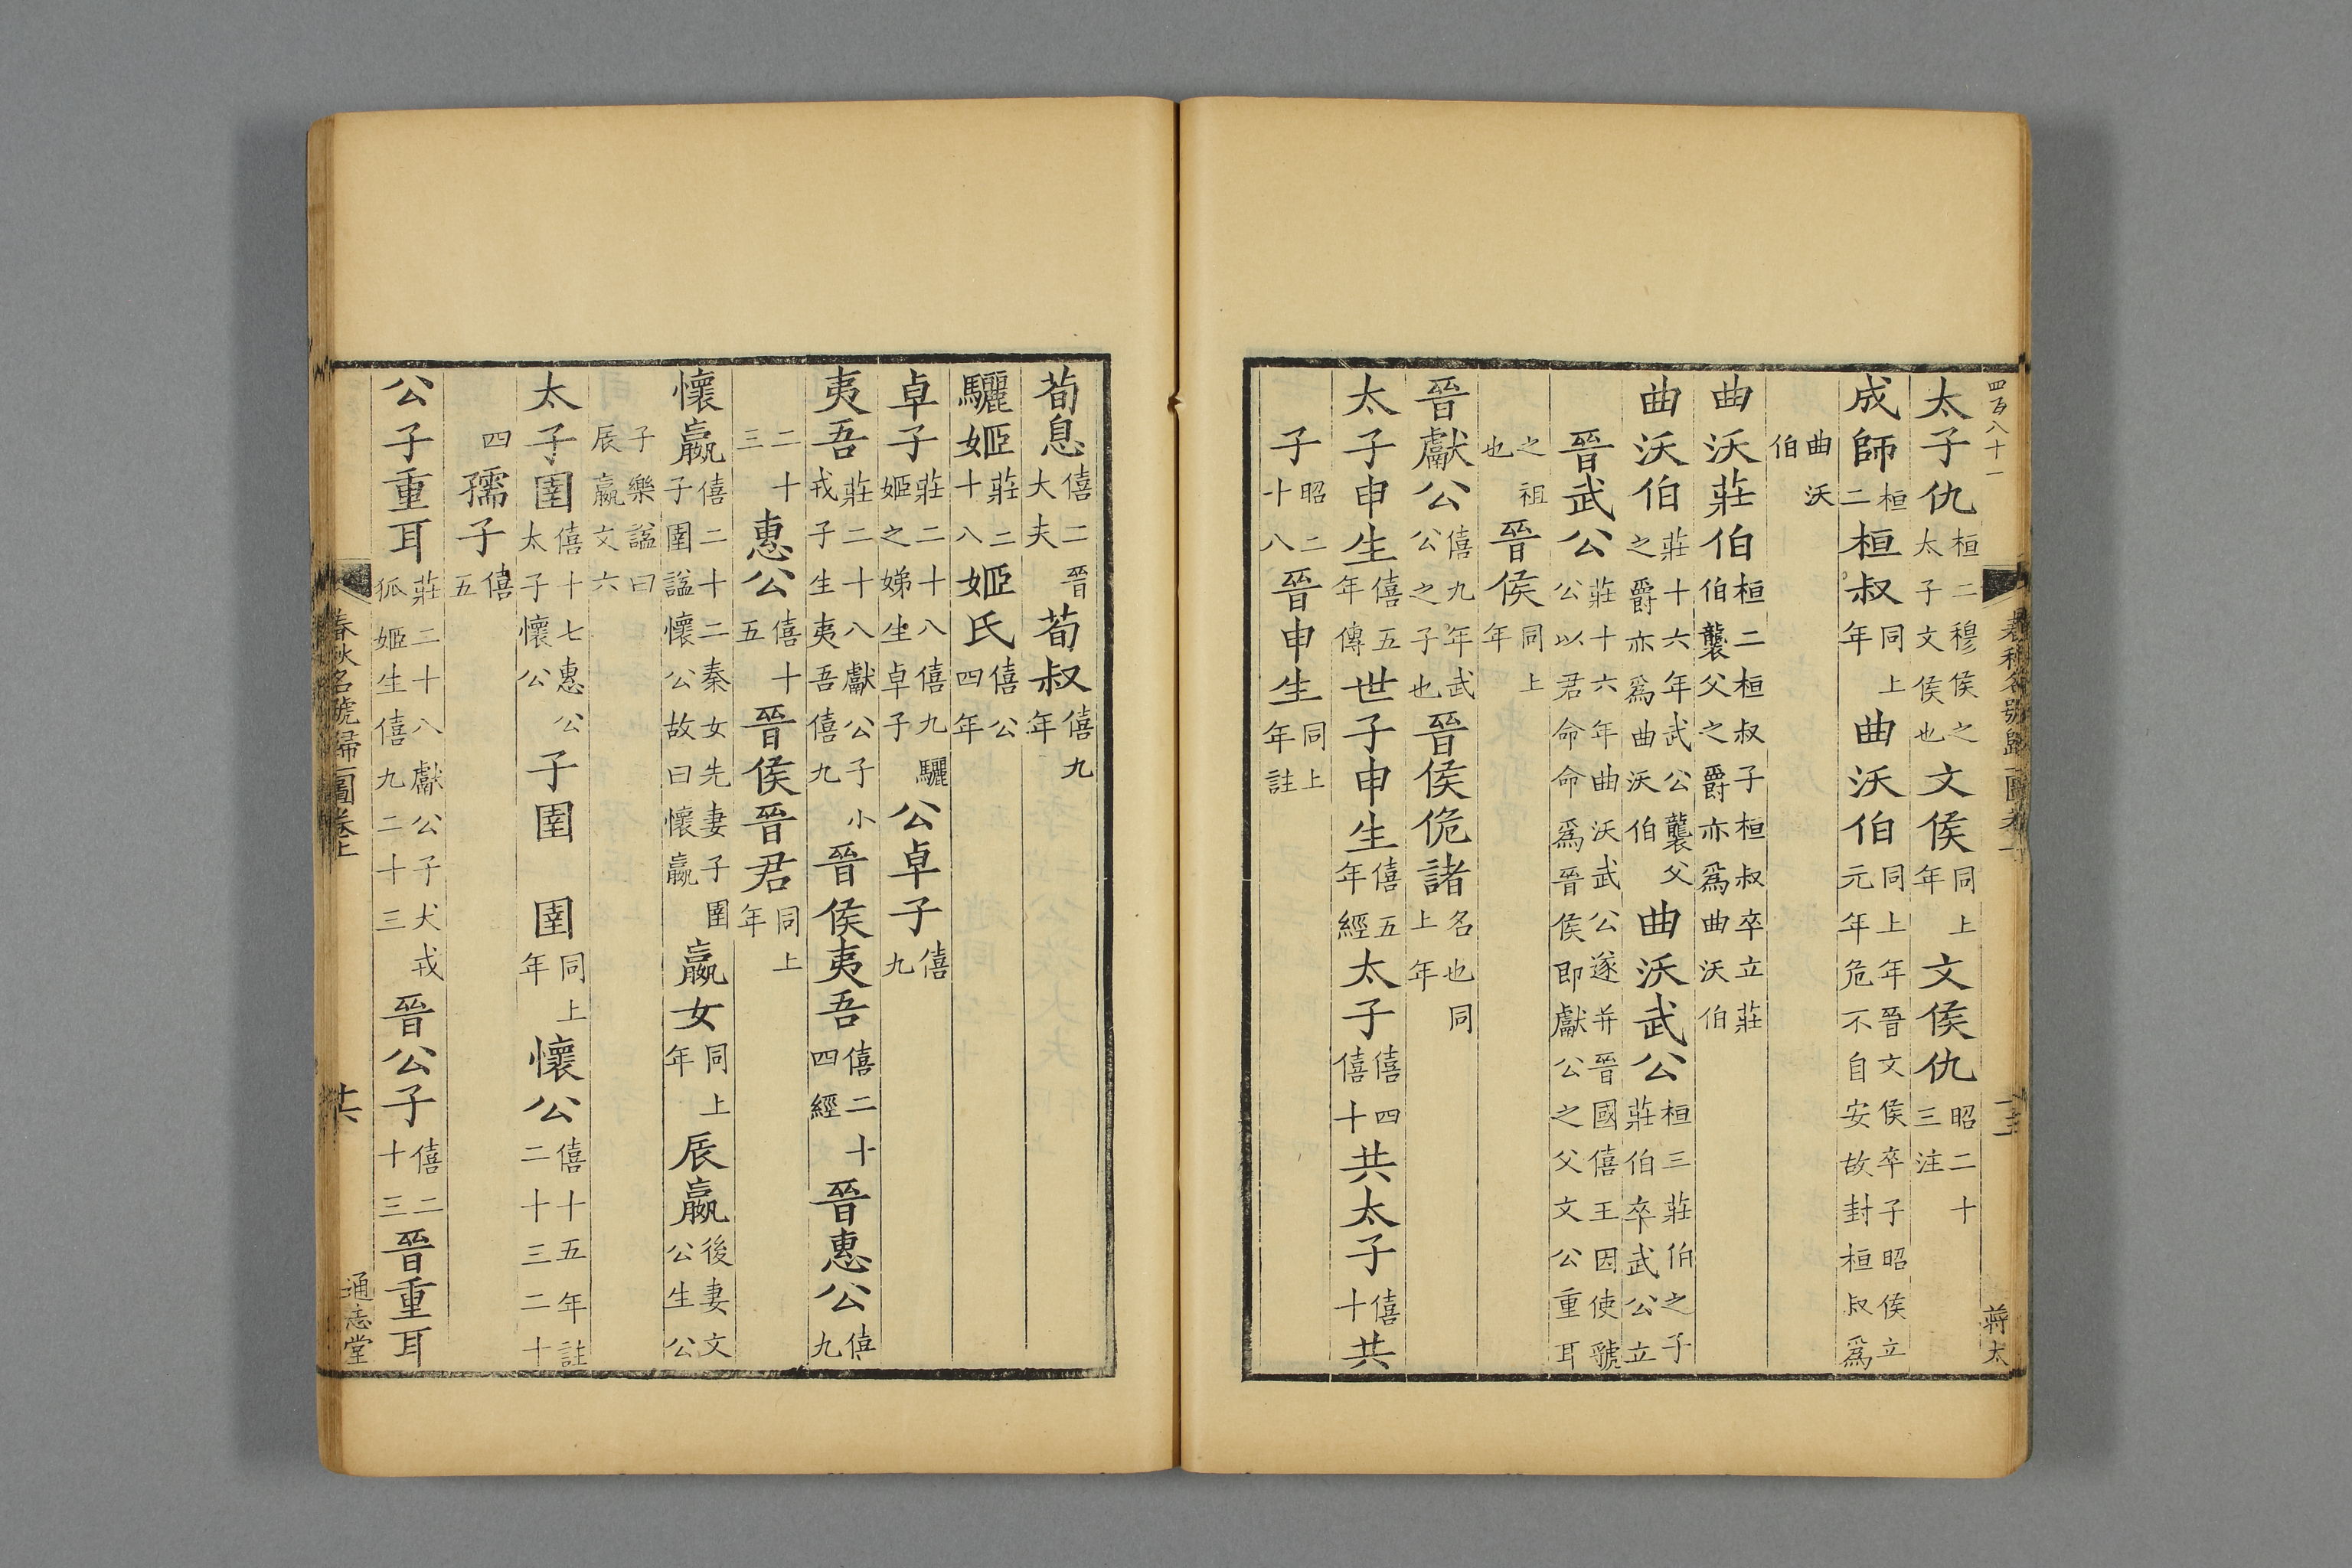 四百八十一
太子仇桓二穆侯之太子文侯也文侯同上年文侯仇昭二十三注
成師桓二桓叔同上年曲沃伯同上年晉文侯卒子昭侯立元年危不自安故封桓叔爲
曲沃伯
曲沃莊伯桓二桓叔子桓叔卒立莊伯襲父之爵亦爲曲沃伯
曲沃伯莊十六年武公襲父之爵亦爲曲沃伯曲沃武公桓三莊伯之子莊伯卒武公立
晉武公莊十六年曲沃武公遂并晉國僖王因使虢公以君命命爲晉侯即獻公之父文公重耳
之祖也晉侯同上年
晉獻公僖九年武公之子也晉侯佹諸名也同上年
太子申生僖五年傳世子申生僖五年經太子僖四僖十共太子僖十共
子昭二十八晉申生同上年註
蔣太
荀息僖二晉大夫荀叔僖九年
驪姬莊二十八姬氏僖公四年
卓子莊二十八僖九驪姬之娣生卓子公卓子僖九
夷吾莊二十八獻公子小戎子生夷吾僖九晉侯夷吾僖二十四經晉惠公僖九
二十三惠公僖十五晉侯晉君同上年
懷嬴僖二十二秦女先妻子圉子圉諡懷公故曰懷嬴嬴女同上年辰嬴後妻文公生公
子樂諡曰辰嬴文六
太子圉僖十七惠公太子懷公子圉 圉同上年懷公僖十五年註二十三二十
四孺子僖五
公子重耳莊二十八獻公子犬戎狐姬生僖九二十三晉公子僖二十三晉重耳
春秋名號歸一圖卷上
共
通志堂